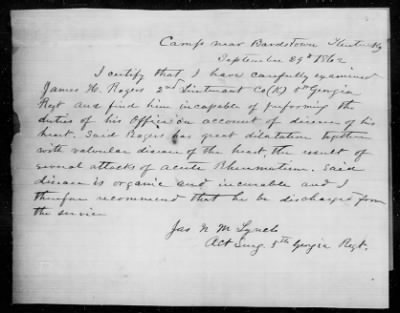 Camp near Bardstown Kentucky
September 29th 1862
I certify that I have carefully examined
James H. Rogers 2nd Lieutenant Co (K) 5th Georgia
Regt and find him incapable of performing the
duties of his Office on account of disease of his
heart. Said Rogers has great dilatation together
with valvular disease of the heart, the result of
several attacks of acute Rheumatism. Said
disease is organic and incurable and I
therefore recommend that he be discharged from
the service
Jas N M Lynch
Act Surg. 5th Georgia Regt.